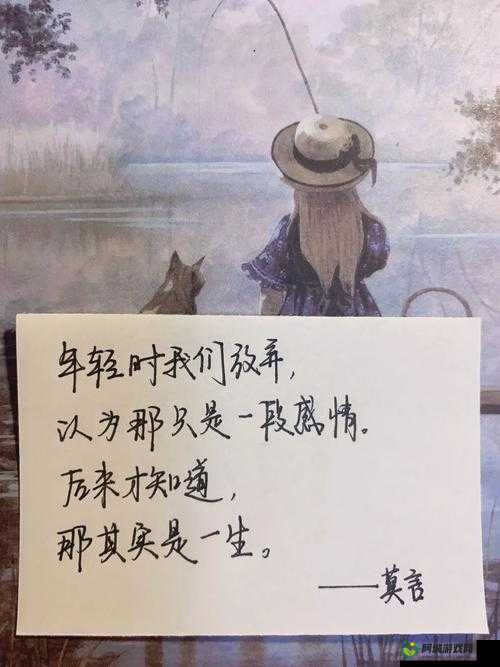 年轻时我们放弃，
认为那只是一段感情。
后来才知道，
那其实是一生。
——莫言
阿纲游戏网